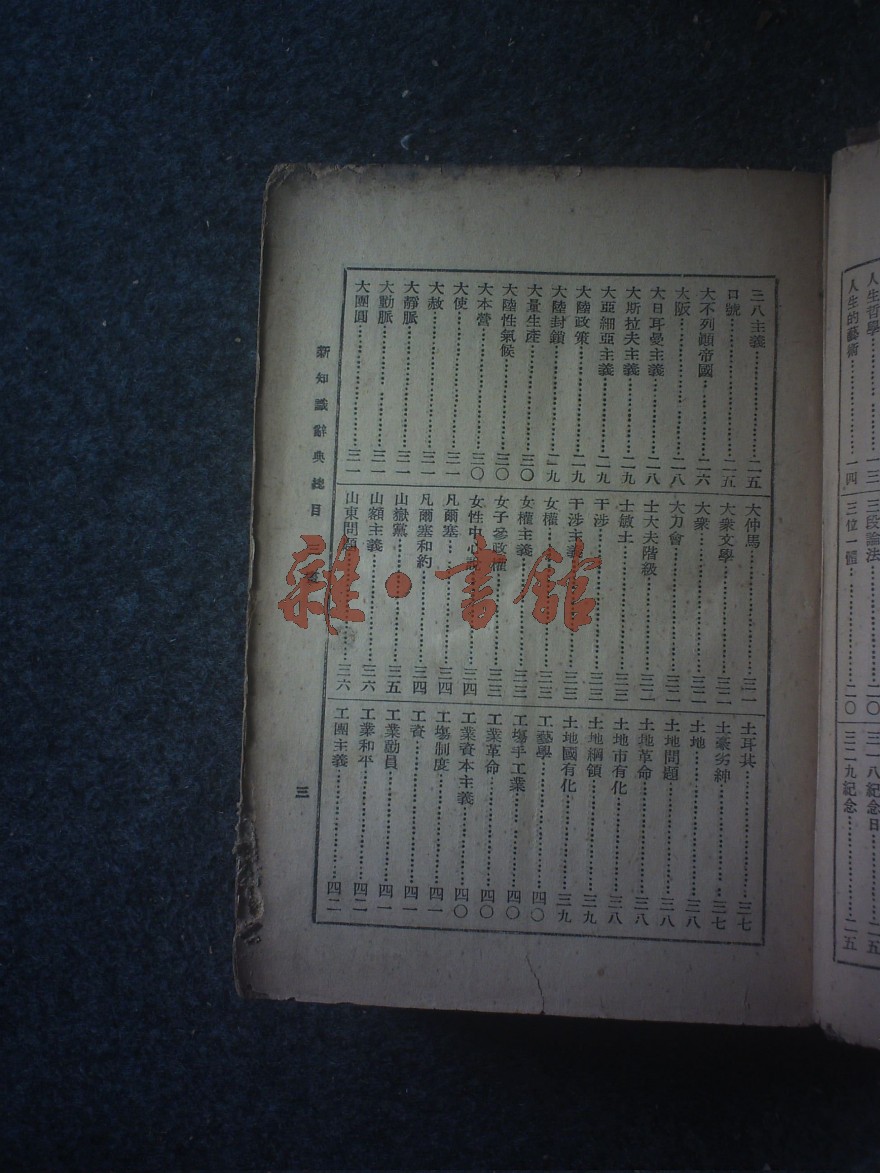 三八主義……二五
口號……二五
大不列顛帝國……二六
大阪……二八
大日耳曼主義……二八
大斯拉夫主義……二九
大亞細亞主義……二九
大陸政策……二九
大陸封鎖……二九
大量生產……三〇
大陸性氣候……三〇
大本營……三〇
大使……三一
大赦……三一
大靜脈……三一
大動脈……三一
大團圓……三一
大仲馬……三二
大衆文學……三二
大衆……三二
大刀會……三二
士大夫階級……三二
士敏土……三三
干涉……三三
干涉主義……三三
女權……三三
女權主義……三三
女子參政權……三三
女性中心說……三四
凡爾塞……三四
凡爾塞和約……三四
山嶽黨……三五
山額主義……三六
山東問題……三六
土耳其……三七
土豪劣紳……三七
土地……三八
土地問題……三八
土地革命……三八
土地市有化……三八
土地綱領……三九
土地國有化……三九
工藝學……四〇
工場手工業……四〇
工業革命……四〇
工業資本主義……四〇
工場制度……四一
工資……四一
工業動員……四一
工業和平……四二
工團主義……四二
新知識辭典總目
三
人生哲學……一三
人生的藝術……一四
三段論法……二〇
三位一體……二〇
三一八紀念日……二五
三二九紀念……二五
雜·書舘